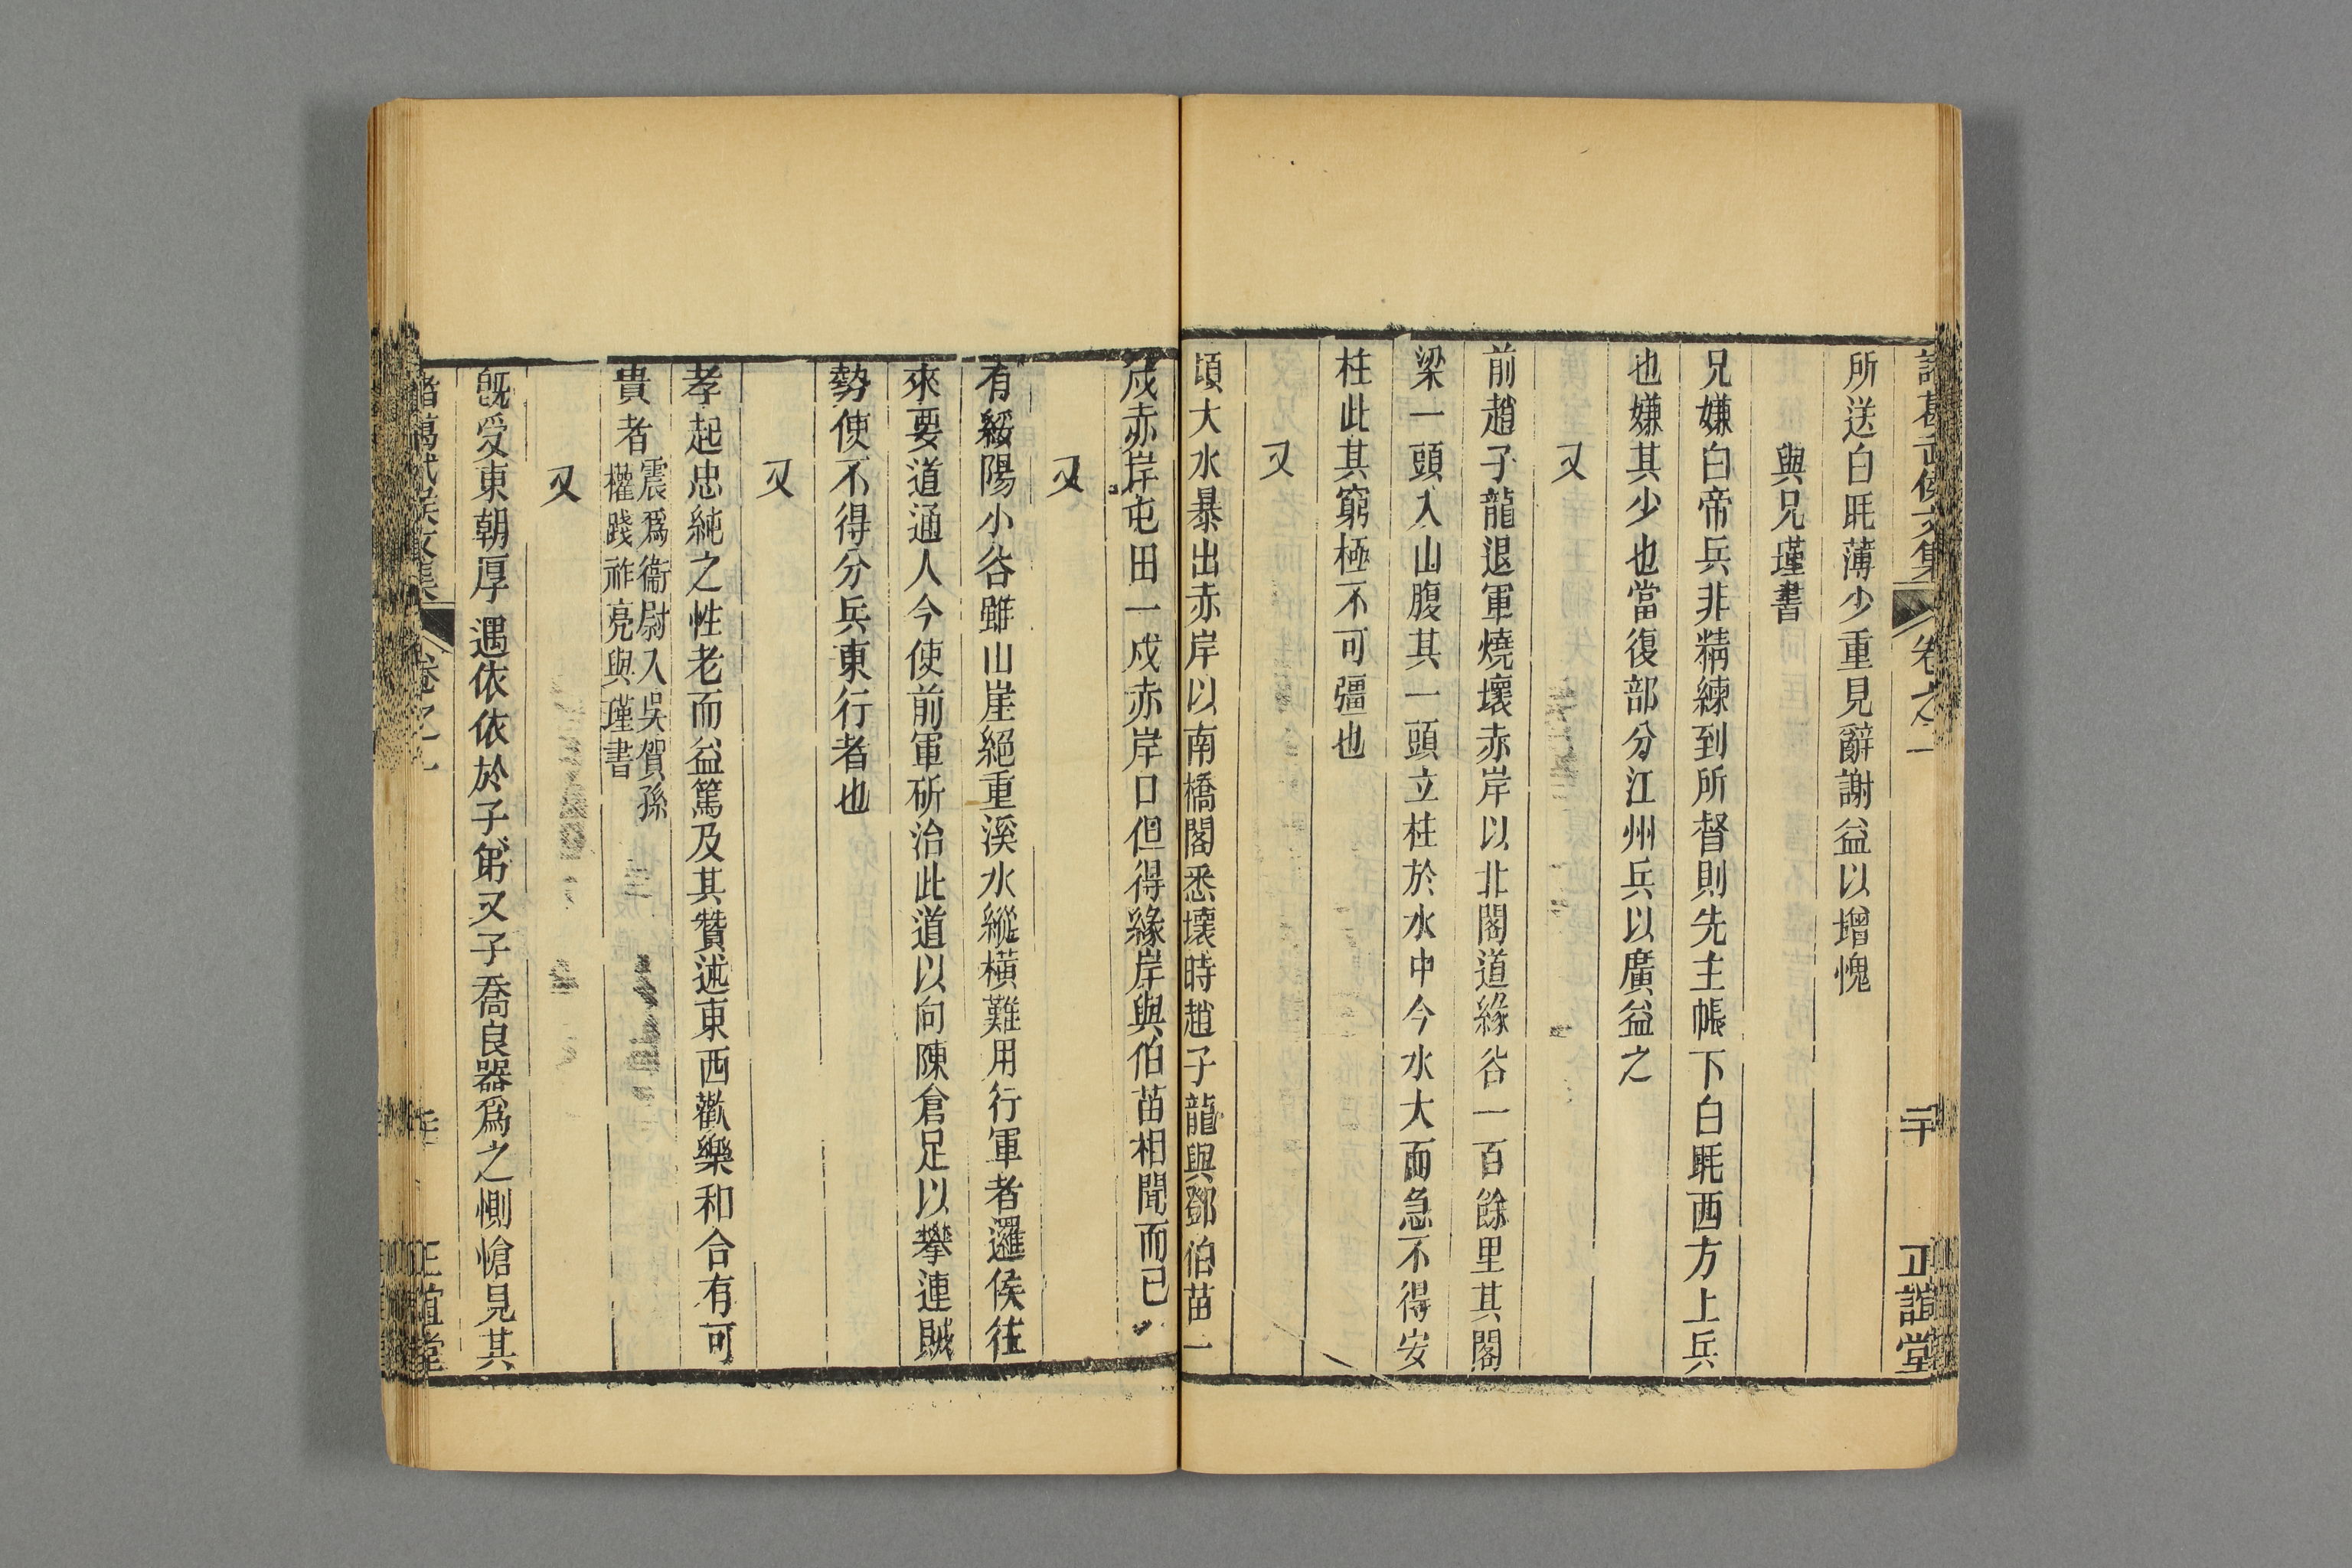 諸葛武侯文集 卷之一 二十 正誼堂
所送白毦薄少重見辭謝益以增愧
與兄瑾書
兄嫌白帝兵非精練到所督則先主帳下白毦西方上兵
也嫌其少也當復部分江州兵以廣益之
又
前趙子龍退軍燒壞赤岸以北閣道緣谷一百餘里其閣
梁一頭入山腹其一頭立柱於水中今水大而急不得安
柱此其窮極不可彊也
又
頃大水暴出赤岸以南橋閣悉壞時趙子龍與鄧伯苗一
戍赤岸屯田一戍赤岸口但得緣岸與伯苗相聞而已
又
有綏陽小谷雖山崖絕重溪水縱橫難用行軍者邏侯往
來要道通人今使前軍斫治此道以向陳倉足以攀連賊
勢使不得分兵東行者也
又
孝起忠純之性老而益篤及其贊述東西歡樂和合有可
貴者震爲衞尉入吳賀孫
權踐祚亮與瑾書
又
旣受東朝厚遇依依於子弟又子喬良器爲之惻愴見其
諸葛武侯文集 卷之一 正誼堂